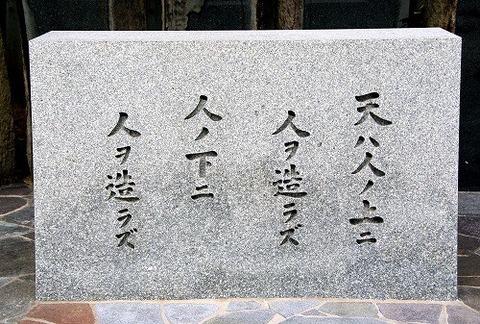 天ハ人ノ上ニ
人ヲ造ラズ
人ノ下ニ
人ヲ造ラズ